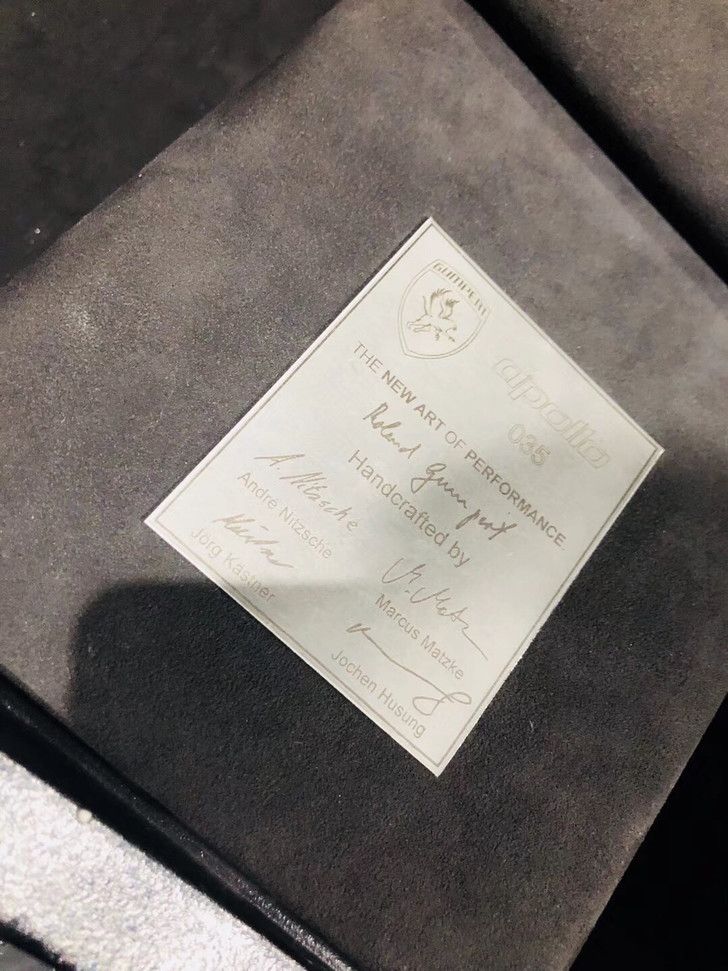 GUMPERT
apollo
035
THE NEW ART OF PERFORMANCE.
Roland Gumpert
Handcrafted by
A. Nitzsche
Andre Nitzsche
M. Matzke
Marcus Matzke
Kästner
Jörg Kästner
Jochen Husung